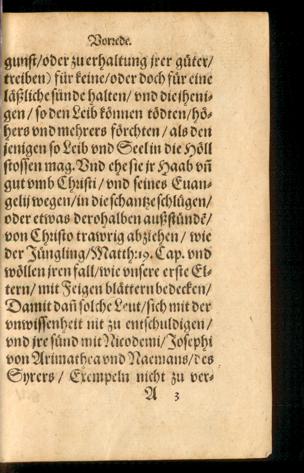 Vorrede.
gunst/oder zu erhaltung jrer güter/
treiben) für keine/oder doch für eine
läßliche sünde halten/ vnd die jheni-
gen / so den Leib können tödten/hö-
hers vnd mehrers förchten / als den
jenigen so Leib vnd Seel in die Höll
stossen mag. Vnd ehe sie jr Haab vñ
gut vmb Christi / vnd seines Euan-
gelij wegen/in die schantze schlügen/
oder etwas derohalben außstündẽ/
von Christo trawrig abziehen / wie
der Jüngling/Matth:19. Cap. vnd
wöllen jren fall/wie vnsere erste El-
tern/ mit Feigen blättern bedecken/
Damit dañ solche Leut/sich mit der
vnwissenheit nit zu entschuldigen/
vnd jre sünd mit Nicodemi/ Josephi
von Arimathea vnd Naemans/des
Syrers / Exempeln nicht zu ver-
A 3